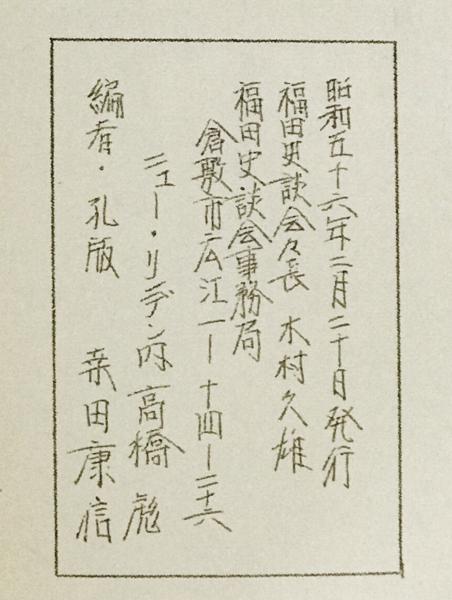 昭和五十六年二月二十日発行
福田史談会々長 木村久雄
福田史談会事務局
倉敷市広江一ー十四ー二十六
ニュー・リデン内 高橋 彪
編者・孔版 桒田康信